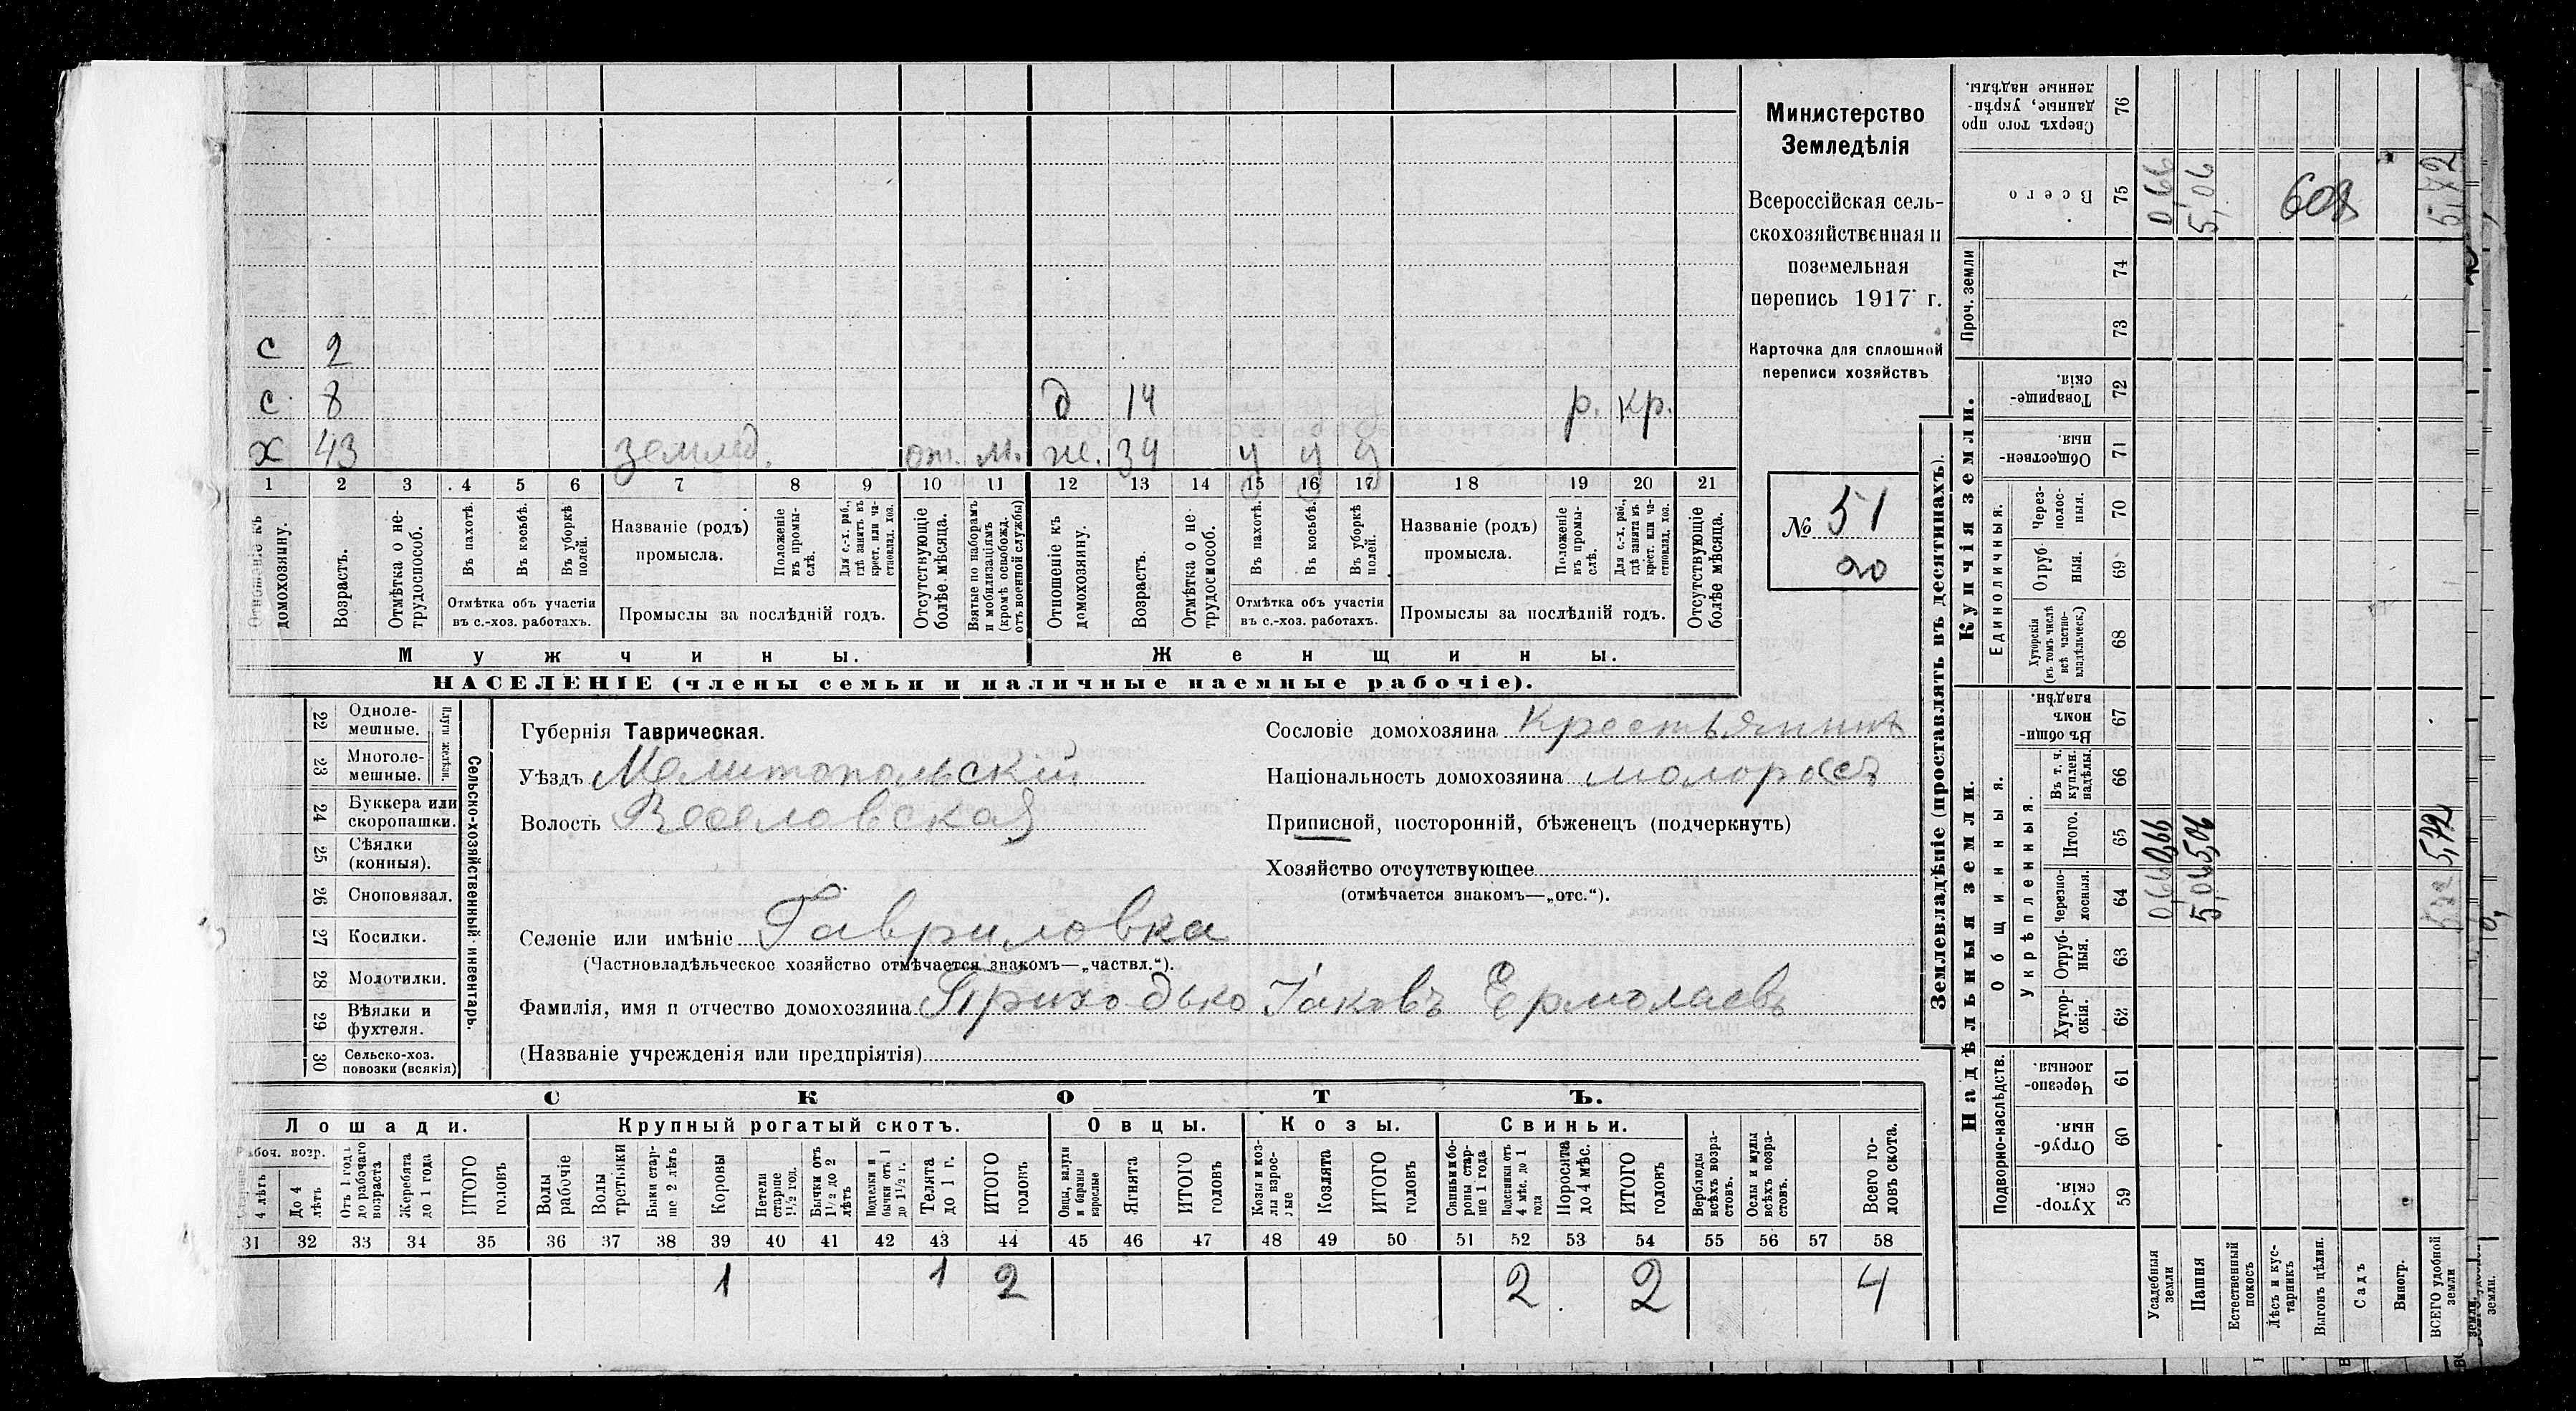 Министерство
Земледѣлія
Всероссійская сель-
скохозяйственная и
поземельная
перепись 1917 г.
Карточка для сплошной
переписи хозяйствъ
№ 51
20
с 2
с. 8 д 14 р. кр.
х 43 землед. от. м. ж. 34 у у у
1 2 3 4 5 6 7 8 9 10 11 12 13 14 15 16 17 18 19 20 21
Отношеніе къ домохозяину.
Возрастъ.
Отмѣтка о не-трудоспособ.
Въ пахотѣ.
Въ косьбѣ.
Въ уборкѣ полей.
Отмѣтка объ участіи
въ с.-хоз. работахъ.
Названіе (родъ)
промысла.
Положеніе въ промы-слѣ.
Для с.-х. раб., гдѣ занятъ въ крест. или ча-стновлад. хоз.
Промыслы за послѣдній годъ.
Отсутствующіе болѣе мѣсяца.
Взятые по наборамъ и мобилизаціямъ (кромѣ освобожд. отъ военной службы)
Отношеніе къ домохозяину.
Возрастъ.
Отмѣтка о не-трудоспособ.
Въ пахотѣ.
Въ косьбѣ.
Въ уборкѣ полей.
Отмѣтка объ участіи
въ с.-хоз. работахъ.
Названіе (родъ)
промысла.
Положеніе въ промы-слѣ.
Для с.-х. раб., гдѣ занята въ крест. или ча-стновлад. хоз.
Промыслы за послѣдній годъ.
Отсутствующіе болѣе мѣсяца.
Мужчины.
Женщины.
НАСЕЛЕНІЕ (члены семьи и наличные наемные рабочіе).
Сельско-хозяйственный инвентарь.
Плуги желѣзн.
22 Одноле-мешные.
23 Многоле-мешные.
24 Буккера или скоропашки.
25 Сѣялки (конныя).
26 Сноповязал.
27 Косилки.
28 Молотилки.
29 Вѣялки и фухтеля.
30 Сельско-хоз. повозки (всякія)
Губернія Таврическая.
Уѣздъ Мелитопольскій
Волость Веселовская
Сословіе домохозяина Крестьянинъ
Національность домохозяина малороссъ
Приписной, посторонній, бѣженецъ (подчеркнуть)
Хозяйство отсутствующее
(отмѣчается знакомъ—„отс.“).
Селеніе или имѣніе Гавриловка
(Частновладѣльческое хозяйство отмѣчается знакомъ—„частвл.“).
Фамилія, имя и отчество домохозяина Приходько Іаковъ Ермолаевъ
(Названіе учрежденія или предпріятія)
СКОТЪ.
Лошади.
Крупный рогатый скотъ.
Овцы.
Козы.
Свиньи.
4 лѣтъ
До 4 лѣтъ
Отъ 1 года до рабочаго возраста
Жеребята до 1 года
ИТОГО головъ
Волы рабочіе
Волы трстьяки
Быки стар-ше 2 лѣтъ
Коровы
Нетели старше 1½ год.
Бычки отъ 1½ до 2 лѣтъ
Подтелки и бычки отъ 1 до 1½ г.
Телята до 1 г.
ИТОГО головъ
Овцы, валухи и бараны взрослые
Ягнята
ИТОГО головъ
Козы и коз-лы взрос-лые
Козлята
ИТОГО головъ
Свиньи и бо-ровы стар-ше 1 года
Подсвинки отъ 4 мѣс. до 1 года
Поросята до 4 мѣс.
ИТОГО головъ
Верблюды всѣхъ возра-стовъ.
Ослы и мулы всѣхъ возра-стовъ.
Всего го-ловъ скота.
31 32 33 34 35 36 37 38 39 40 41 42 43 44 45 46 47 48 49 50 51 52 53 54 55 56 57 58
1 1 2 2 2 4
Землевладѣніе (проставлять въ десятинахъ).
Надѣльныя земли.
Купчія земли.
Подворно-наслѣдств.
Общинныя.
Укрѣпленныя.
Единоличныя.
Проч. земли
Хутор-скія. 59
Отруб-ныя. 60
Черезпо-лосныя. 61
Хутор-скія. 62
Отруб-ныя. 63
Черезпо-лосныя. 64
Итого. 65
Въ т. ч. куплен. надѣлы. 66
Въ общи-номъ владѣн. 67
Хуторскія (въ томъ числѣ всѣ частно-владѣльческ.) 68
Отруб-ныя. 69
Через-полос-ныя. 70
Обществен-ныя. 71
Товарище-скія. 72
73
74
Всего 75
Сверхъ того про-данные, укрѣп-ленные надѣлы. 76
Усадебныя земли 0,66 0,66 0,66
Пашня 5,06 5,06 5,06
Естественный покосъ
Лѣсъ и кус-тарникъ
Выгонъ цѣлин.
Садъ
Виногр.
ВСЕГО удобной земли 5,72 5,72 5,72